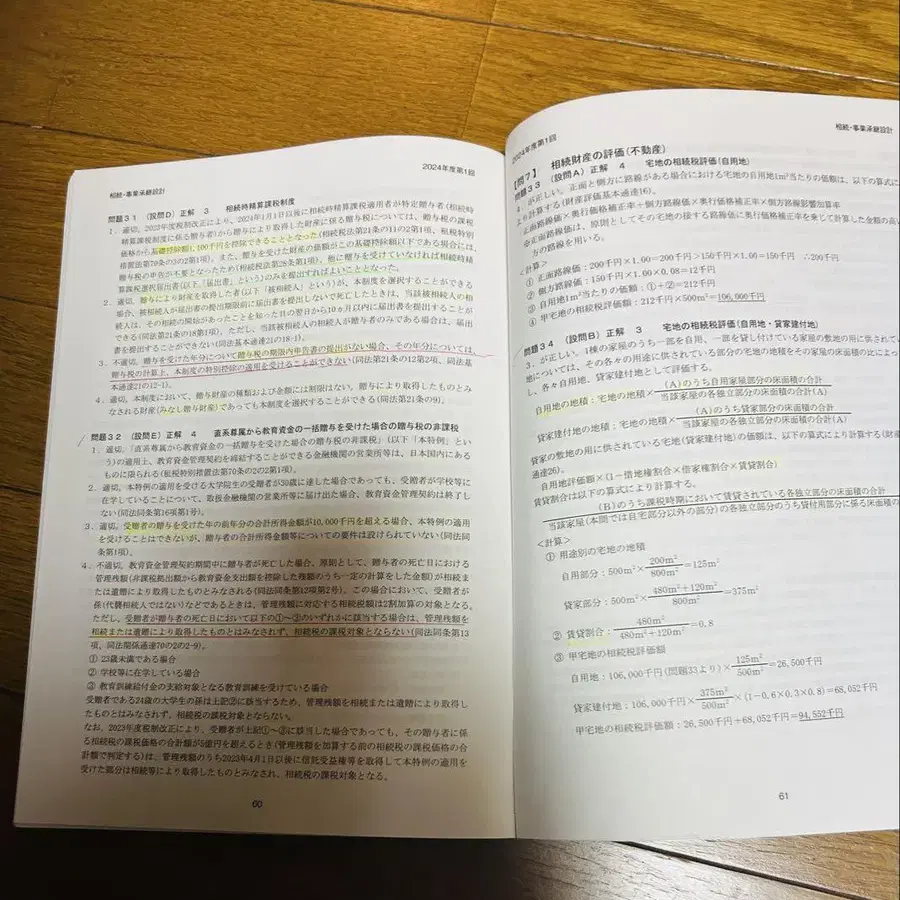 相続・事業承継設計
2024年度第1回
問題31 (設問D) 正解 3 相続時精算課税制度
1. 適切。2023年度税制改正により、2024年1月1日以後に相続時精算課税適用者が特定贈与者(相続時
精算課税制度に係る贈与者)から贈与により取得した財産に係る贈与税については、贈与税の課税
価格から基礎控除額1,100千円を控除できることとなった(相続税法第21条の11の2第1項、租税特別
措置法第70条の3の2第1項)。また、贈与を受けた財産の価額がこの基礎控除額以下である場合には、
贈与税の申告が不要となったため(相続税法第28条第1項)、他に贈与を受けていなければ相続時精
算課税選択届出書(以下「届出書」という)のみを提出すればよいこととなった。
2. 適切。贈与により財産を取得した者(以下「被相続人」という)が、本制度を選択することができる
場合に、被相続人が届出書の提出期限前に届出書を提出しないで死亡したときは、当該被相続人の相
続人は、その相続の開始があったことを知った日の翌日から10ヵ月以内に届出書を提出することが
できる(同法第21条の18第1項)。ただし、当該被相続人の相続人が贈与者のみである場合は、届出
書を提出することができない(同法基本通達21の18-1)。
3. 不適切。贈与を受けた年分について贈与税の期限内申告書の提出がない場合、その年分については
贈与税の計算上、本制度の特別控除の適用を受けることができない(同法第21条の12第2項、同法基
本通達21の12-1)。
4. 適切。本制度において、贈与財産の種類および金額には制限はない。贈与により取得したものとみ
なされる財産(みなし贈与財産)であっても本制度を選択することができる(同法第21条の9)。
問題32 (設問E) 正解 4 直系尊属から教育資金の一括贈与を受けた場合の贈与税の非課税
1. 適切。「直系尊属から教育資金の一括贈与を受けた場合の贈与税の非課税」(以下「本特例」とい
う)の適用上、教育資金管理契約を締結することができる金融機関の営業所等は、日本国内にある
ものに限られる(租税特別措置法第70条の2の2第1項)。
2. 適切。本特例の適用を受ける大学院生の受贈者が30歳に達した場合であっても、受贈者が学校等に
在学していることについて、取扱金融機関の営業所等に届け出た場合、教育資金管理契約は終了し
ない(同法同条第16項第1号)。
3. 適切。受贈者の贈与を受けた年の前年分の合計所得金額が10,000千円を超える場合、本特例の適用
を受けることはできないが、贈与者の合計所得金額等についての要件は設けられていない(同法同
条第1項)。
4. 不適切。教育資金管理契約期間中に贈与者が死亡した場合、原則として、贈与者の死亡日における
管理残額(非課税拠出額から教育資金支出額を控除した残額のうち一定の計算をした金額)が相続ま
たは遺贈により取得したものとみなされる(同法同条第12項第2号)。この場合において、受贈者が
孫(代襲相続人ではない)などであるときは、管理残額に対応する相続税額は2割加算の対象となる。
ただし、受贈者が贈与者の死亡日において以下の①~③のいずれかに該当する場合は、管理残額を
相続または遺贈により取得したものとはみなされず、相続税の課税対象とならない(同法同条第13
項、同法関係通達70の2の2-9)。
① 23歳未満である場合
② 学校等に在学している場合
③ 教育訓練給付金の支給対象となる教育訓練を受けている場合
受贈者である24歳の大学生の孫は上記②に該当するため、管理残額を相続または遺贈により取得し
たものとはみなされず、相続税の課税対象とならない。
なお、2023年度税制改正により、受贈者が上記①~③に該当した場合であっても、その贈与者に係
る相続税の課税価格の合計額が5億円を超えるとき(管理残額を加算する前の相続税の課税価格の合
計額で判定する)は、管理残額のうち2023年4月1日以後に信託受益権等を取得して本特例の適用を
受けた部分は相続等により取得したものとみなされ、相続税の課税対象となる。
60
2024年度第1回
相続・事業承継設計
【問7】 相続財産の評価(不動産)
問題33 (設問A) 正解 4 宅地の相続税評価(自用地)
4. が正しい。正面と側方に路線がある場合における宅地の自用地1m²当たりの価額は、以下の算式に
より計算する(財産評価基本通達16)。
正面路線価×奥行価格補正率+側方路線価×奥行価格補正率×側方路線影響加算率
※正面路線価は、原則としてその宅地の接する路線価に奥行価格補正率を乗じて計算した金額の高い
方の路線を用いる。
<計算>
① 正面路線価:200千円×1.00=200千円>150千円×1.00=150千円 ∴200千円
② 側方路線価:150千円×1.00×0.08=12千円
③ 自用地1m²当たりの価額:①+②=212千円
④ 甲宅地の相続税評価額:212千円×500m²=106,000千円
問題34 (設問B) 正解 3 宅地の相続税評価(自用地・貸家建付地)
3. が正しい。1棟の家屋のうち一部を自用、一部を貸し付けている家屋の敷地の用に供されて
地については、その各々の用途に供されている部分の宅地の地積をその家屋の床面積の比によっ
し、各々自用地、貸家建付地として評価する。
自用地の地積:宅地の地積×(A)のうち自用家屋部分の床面積の合計/当該家屋の各独立部分の床面積の合計(A)
貸家建付地の地積:宅地の地積×(A)のうち貸家部分の床面積の合計/当該家屋の各独立部分の床面積の合計(A)
貸家の敷地の用に供されている宅地(貸家建付地)の価額は、以下の算式により計算する(財産
通達26)。
自用地評価額×(1-借地権割合×借家権割合×賃貸割合)
賃貸割合は以下の算式により計算する。
(B)のうち課税時期において賃貸されている各独立部分の床面積の合計
当該家屋(本問では自宅部分以外の部分)の各独立部分のうち貸付用部分に係る床面積の
<計算>
① 用途別の宅地の地積
自用部分:500m²×200m²/800m²=125m²
貸家部分:500m²×480m²+120m²/800m²=375m²
② 賃貸割合:480m²/480m²+120m²=0.8
③ 甲宅地の相続税評価額
自用地:106,000千円(問題33より)×125m²/500m²=26,500千円
貸家建付地:106,000千円×375m²/500m²×(1-0.6×0.3×0.8)=68,052千円
甲宅地の相続税評価額:26,500千円+68,052千円=94,552千円
61